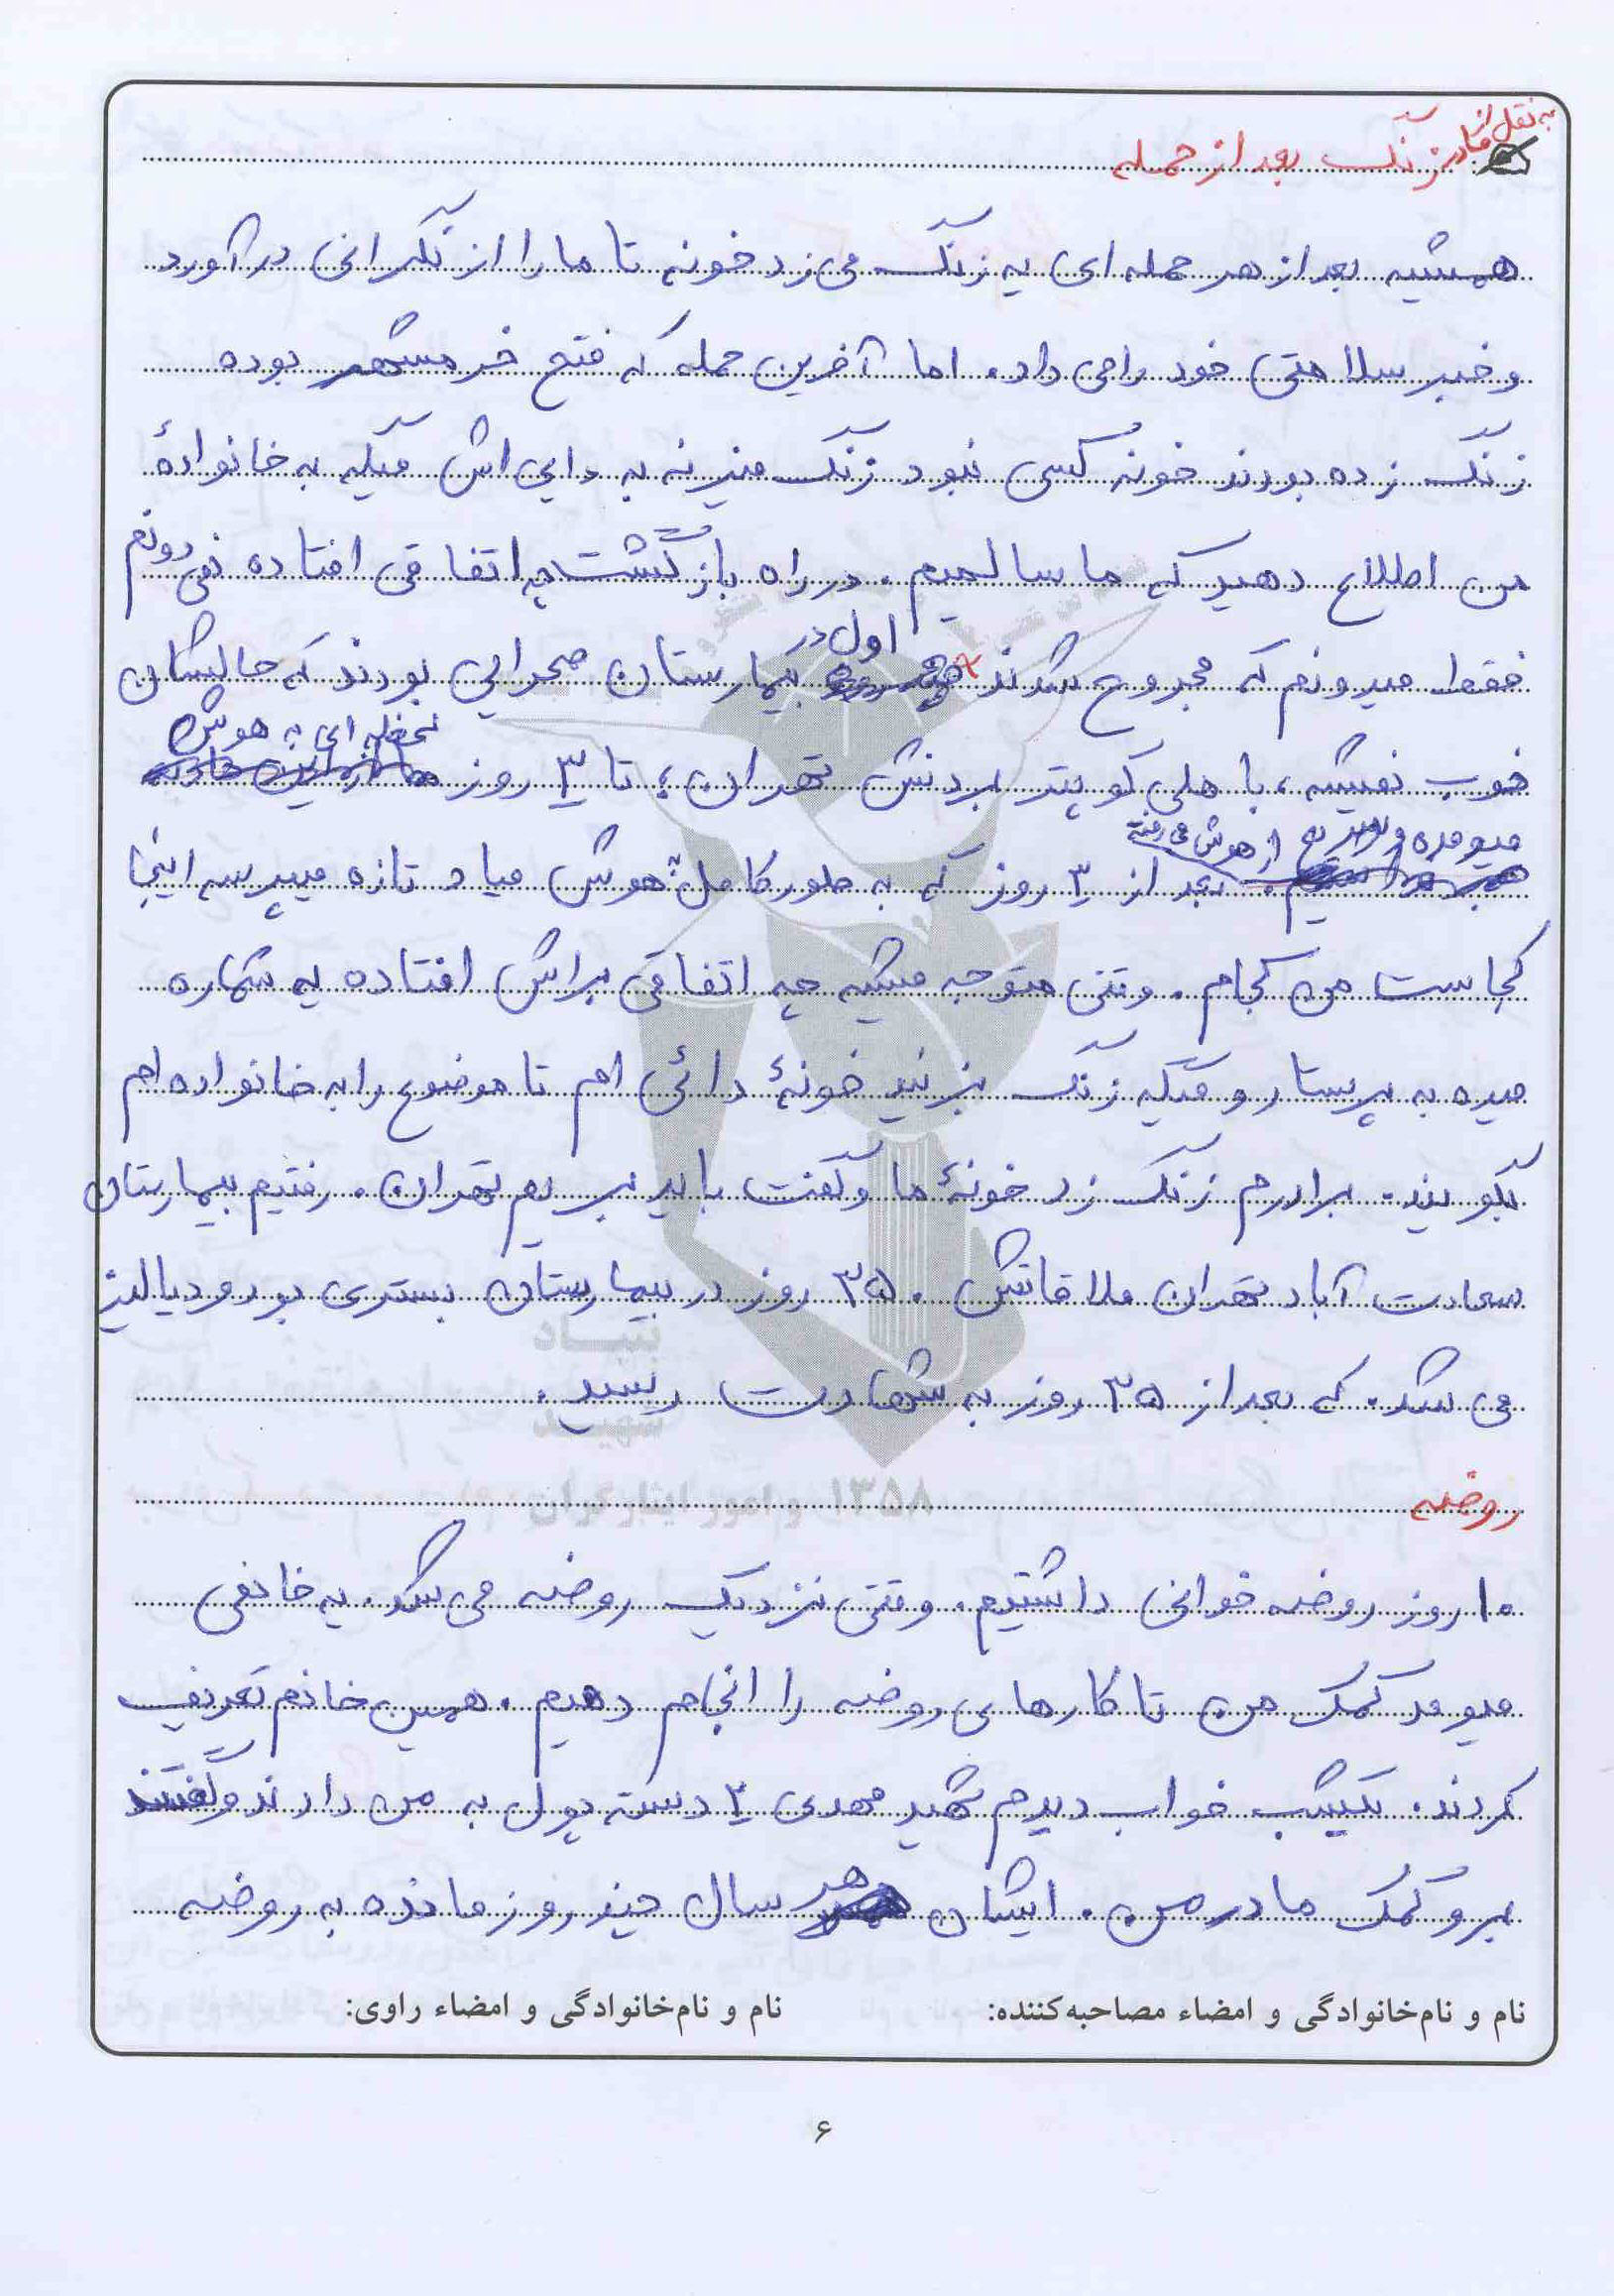 به نقل از مادر
زنگ بعد از حمله
همیشه بعد از هر حمله ای یه زنگ می زد خونه تا ما را از نگرانی در آورد
و خبر سلامتی خود را می داد. اما آخرین حمله که فتح خرمشهر بوده
زنگ زده بودند خونه کسی نبود زنگ میزنه به دایی اش میگه به خانوادهٔ
من اطلاع دهید که ما سالمیم. در راه بازگشت چه اتفاقی افتاده نمی دونم
فقط میدونم که مجروح شدند اول در بیمارستان صحرایی بودند که حالشان
خوب نمیشه، با هلی کوپتر بردنش تهران؛ تا ۳ روز لحظه ای به هوش
میومده و از هوش می رفته
بعد از ۳ روز که به طور کامل به هوش میاد تازه میپرسه اینجا
کجاست من کجام. وقتی متوجه میشه چه اتفاقی براش افتاده یه شماره
میده به پرستار و میگه زنگ بزنید خونهٔ دائی ام تا موضوع را به خانواده ام
بگویند. برادرم زنگ زد خونهٔ ما و گفت باید بریم تهران. رفتیم بیمارستان
سعادت آباد تهران ملاقاتش. ۳۵ روز در بیمارستان بستری بود و دیالیز
می شد. که بعد از ۳۵ روز به شهادت رسید.
بنیاد
شهید
و امور ایثارگران ۱۳۵۸
روضه
۱۰ روز روضه خوانی داشتیم. وقتی نزدیک روضه می شد. یه خانمی
میومد کمک من تا کارهای روضه را انجام دهیم. همین خانم تعریف
کردند. یکشب خواب دیدم شهید مهدی ۲ دسته پول به من دادند و گفتند
برو کمک مادر من. ایشان هر سال چند روز مانده به روضه
نام و نام‌خانوادگی و امضاء مصاحبه‌کننده:
نام و نام‌خانوادگی و امضاء راوی:
۶